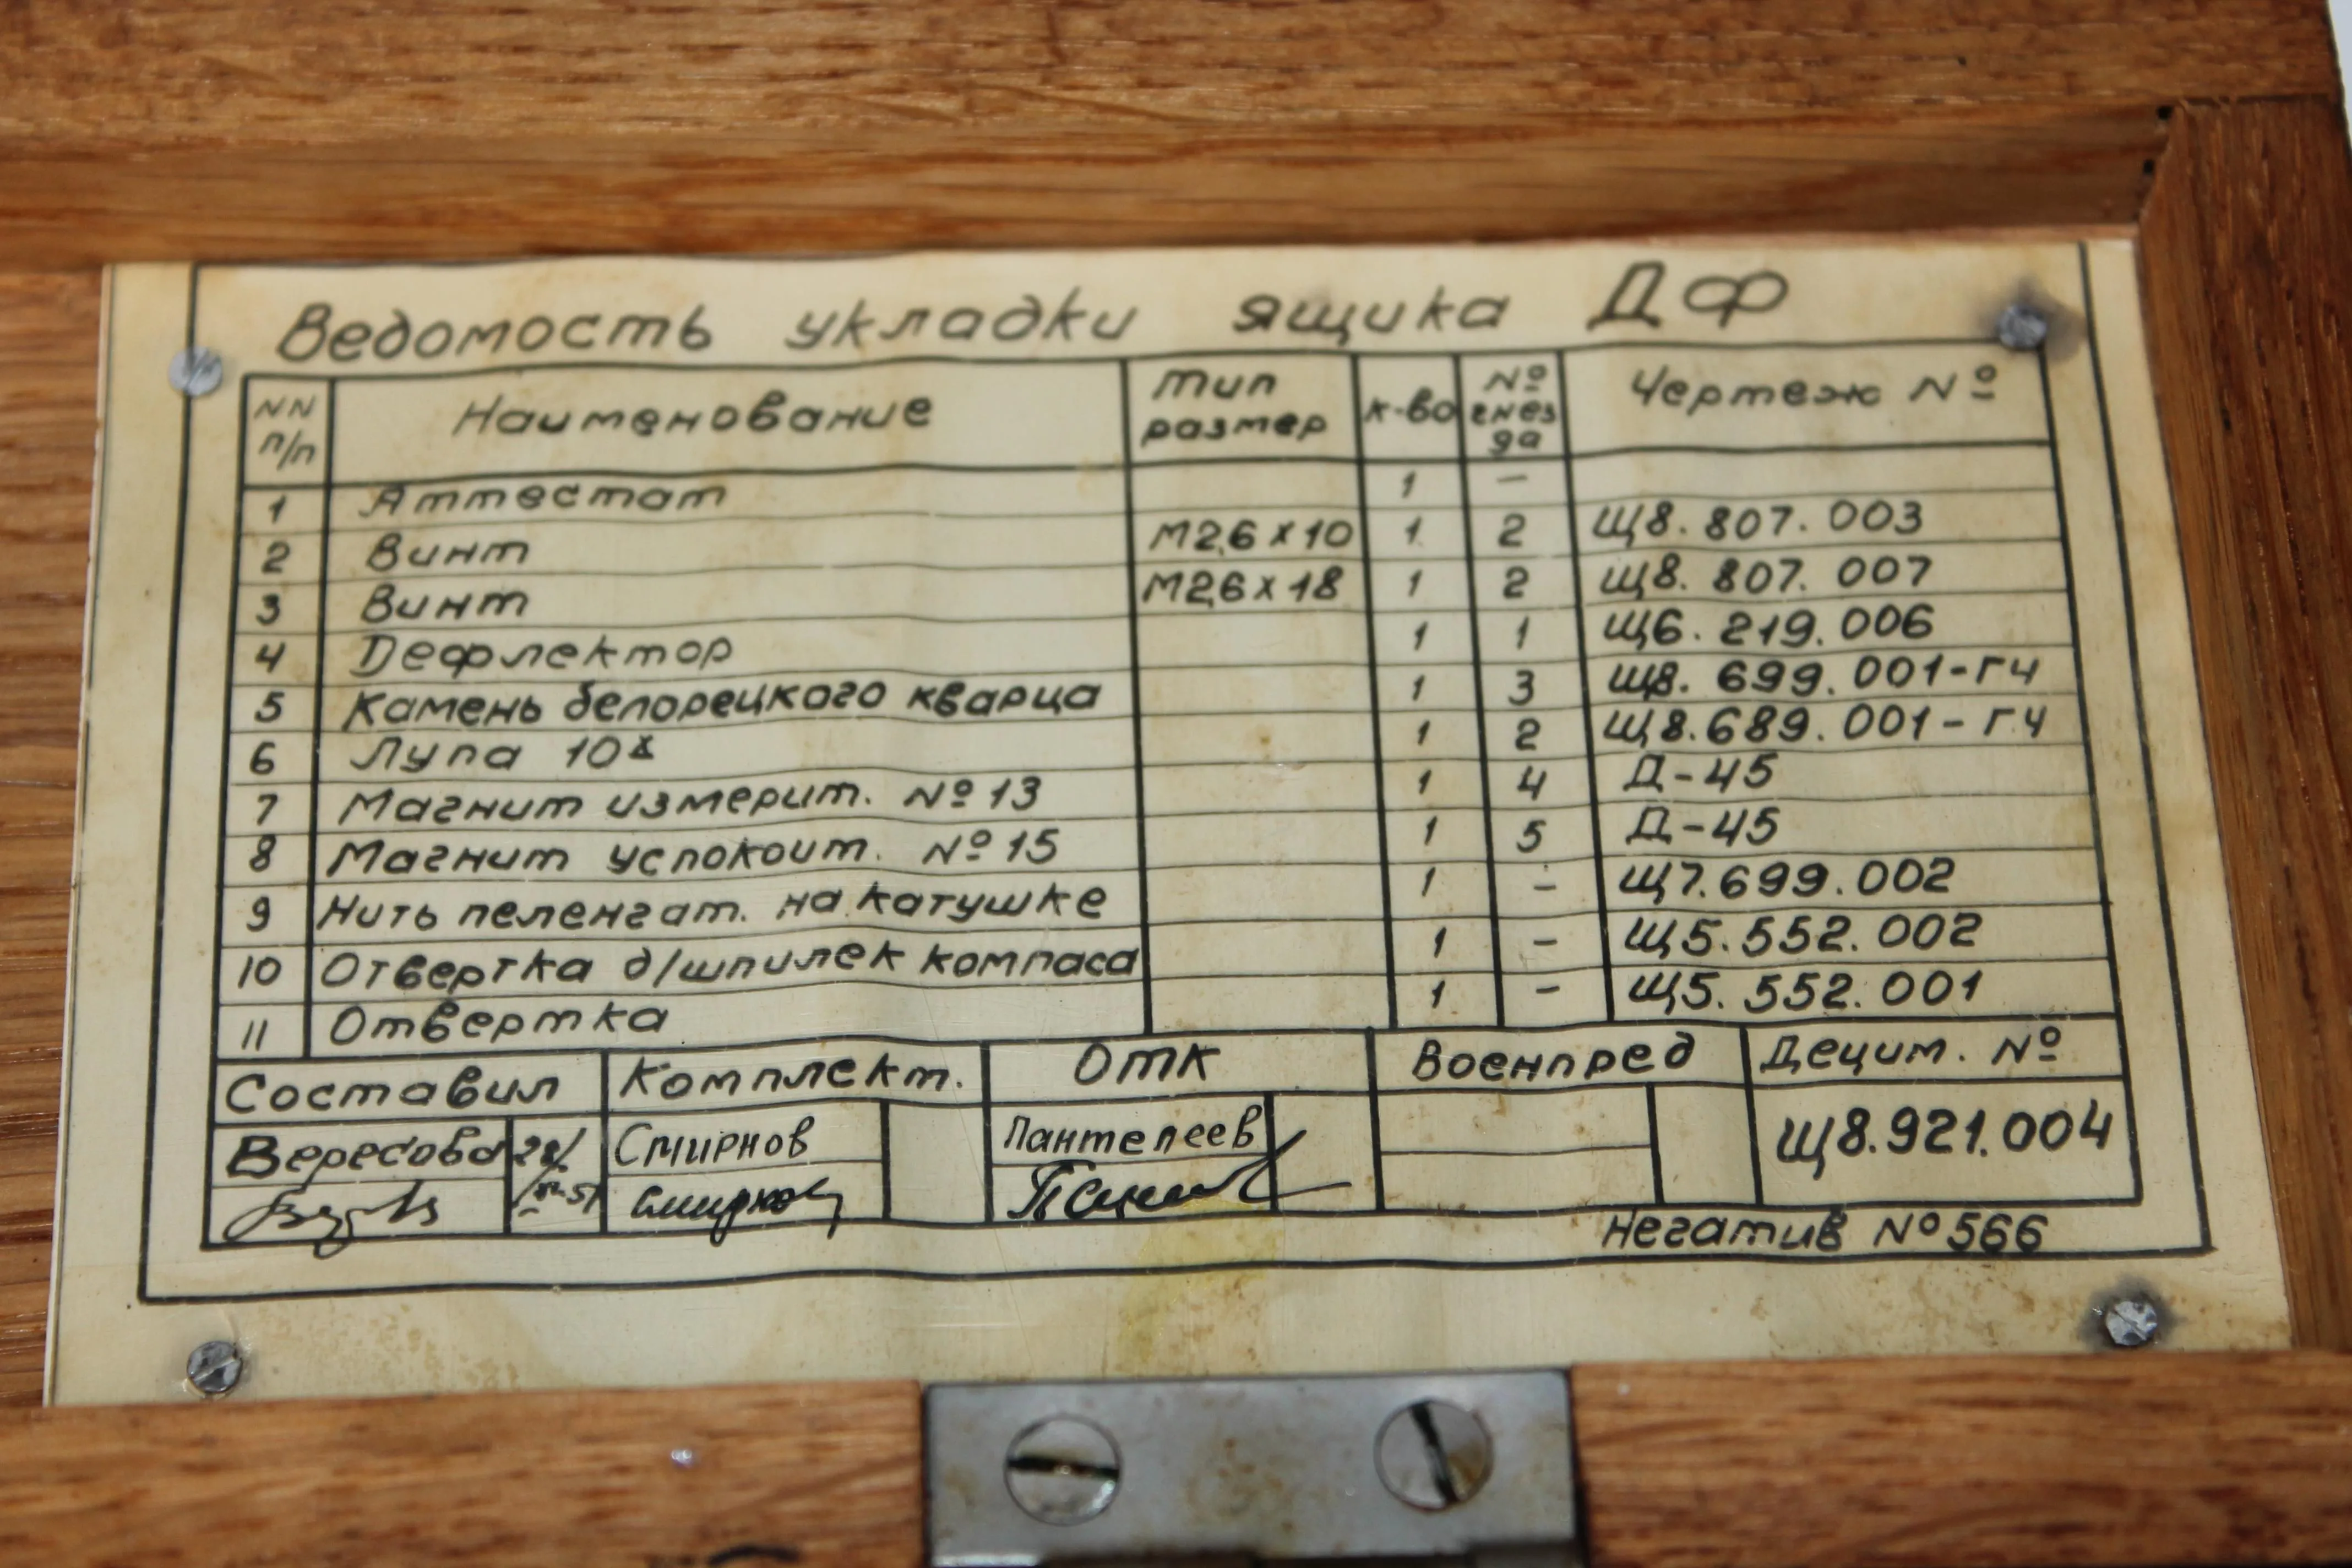 Ведомость укладки ящика ДФ
NN п/п Наименование Тип размер к-во № гнезда Чертеж №
1 Аттестат 1 –
2 Винт М2,6х10 1 2 Щ8.807.003
3 Винт М2,6х18 1 2 Щ8.807.007
4 Дефлектор 1 1 Щ6.219.006
5 Камень белорецкого кварца 1 3 Щ8.699.001-ГЧ
6 Лупа 10х 1 2 Щ8.689.001-ГЧ
7 Магнит измерит. №13 1 4 Д-45
8 Магнит успокоит. №15 1 5 Д-45
9 Нить пеленгат. на катушке 1 – Щ7.699.002
10 Отвертка д/шпилек компаса 1 – Щ5.552.002
11 Отвертка 1 – Щ5.552.001
Составил Комплект. ОТК Военпред Децим. №
Вересова Смирнов Пантелеев Щ8.921.004
Негатив №566